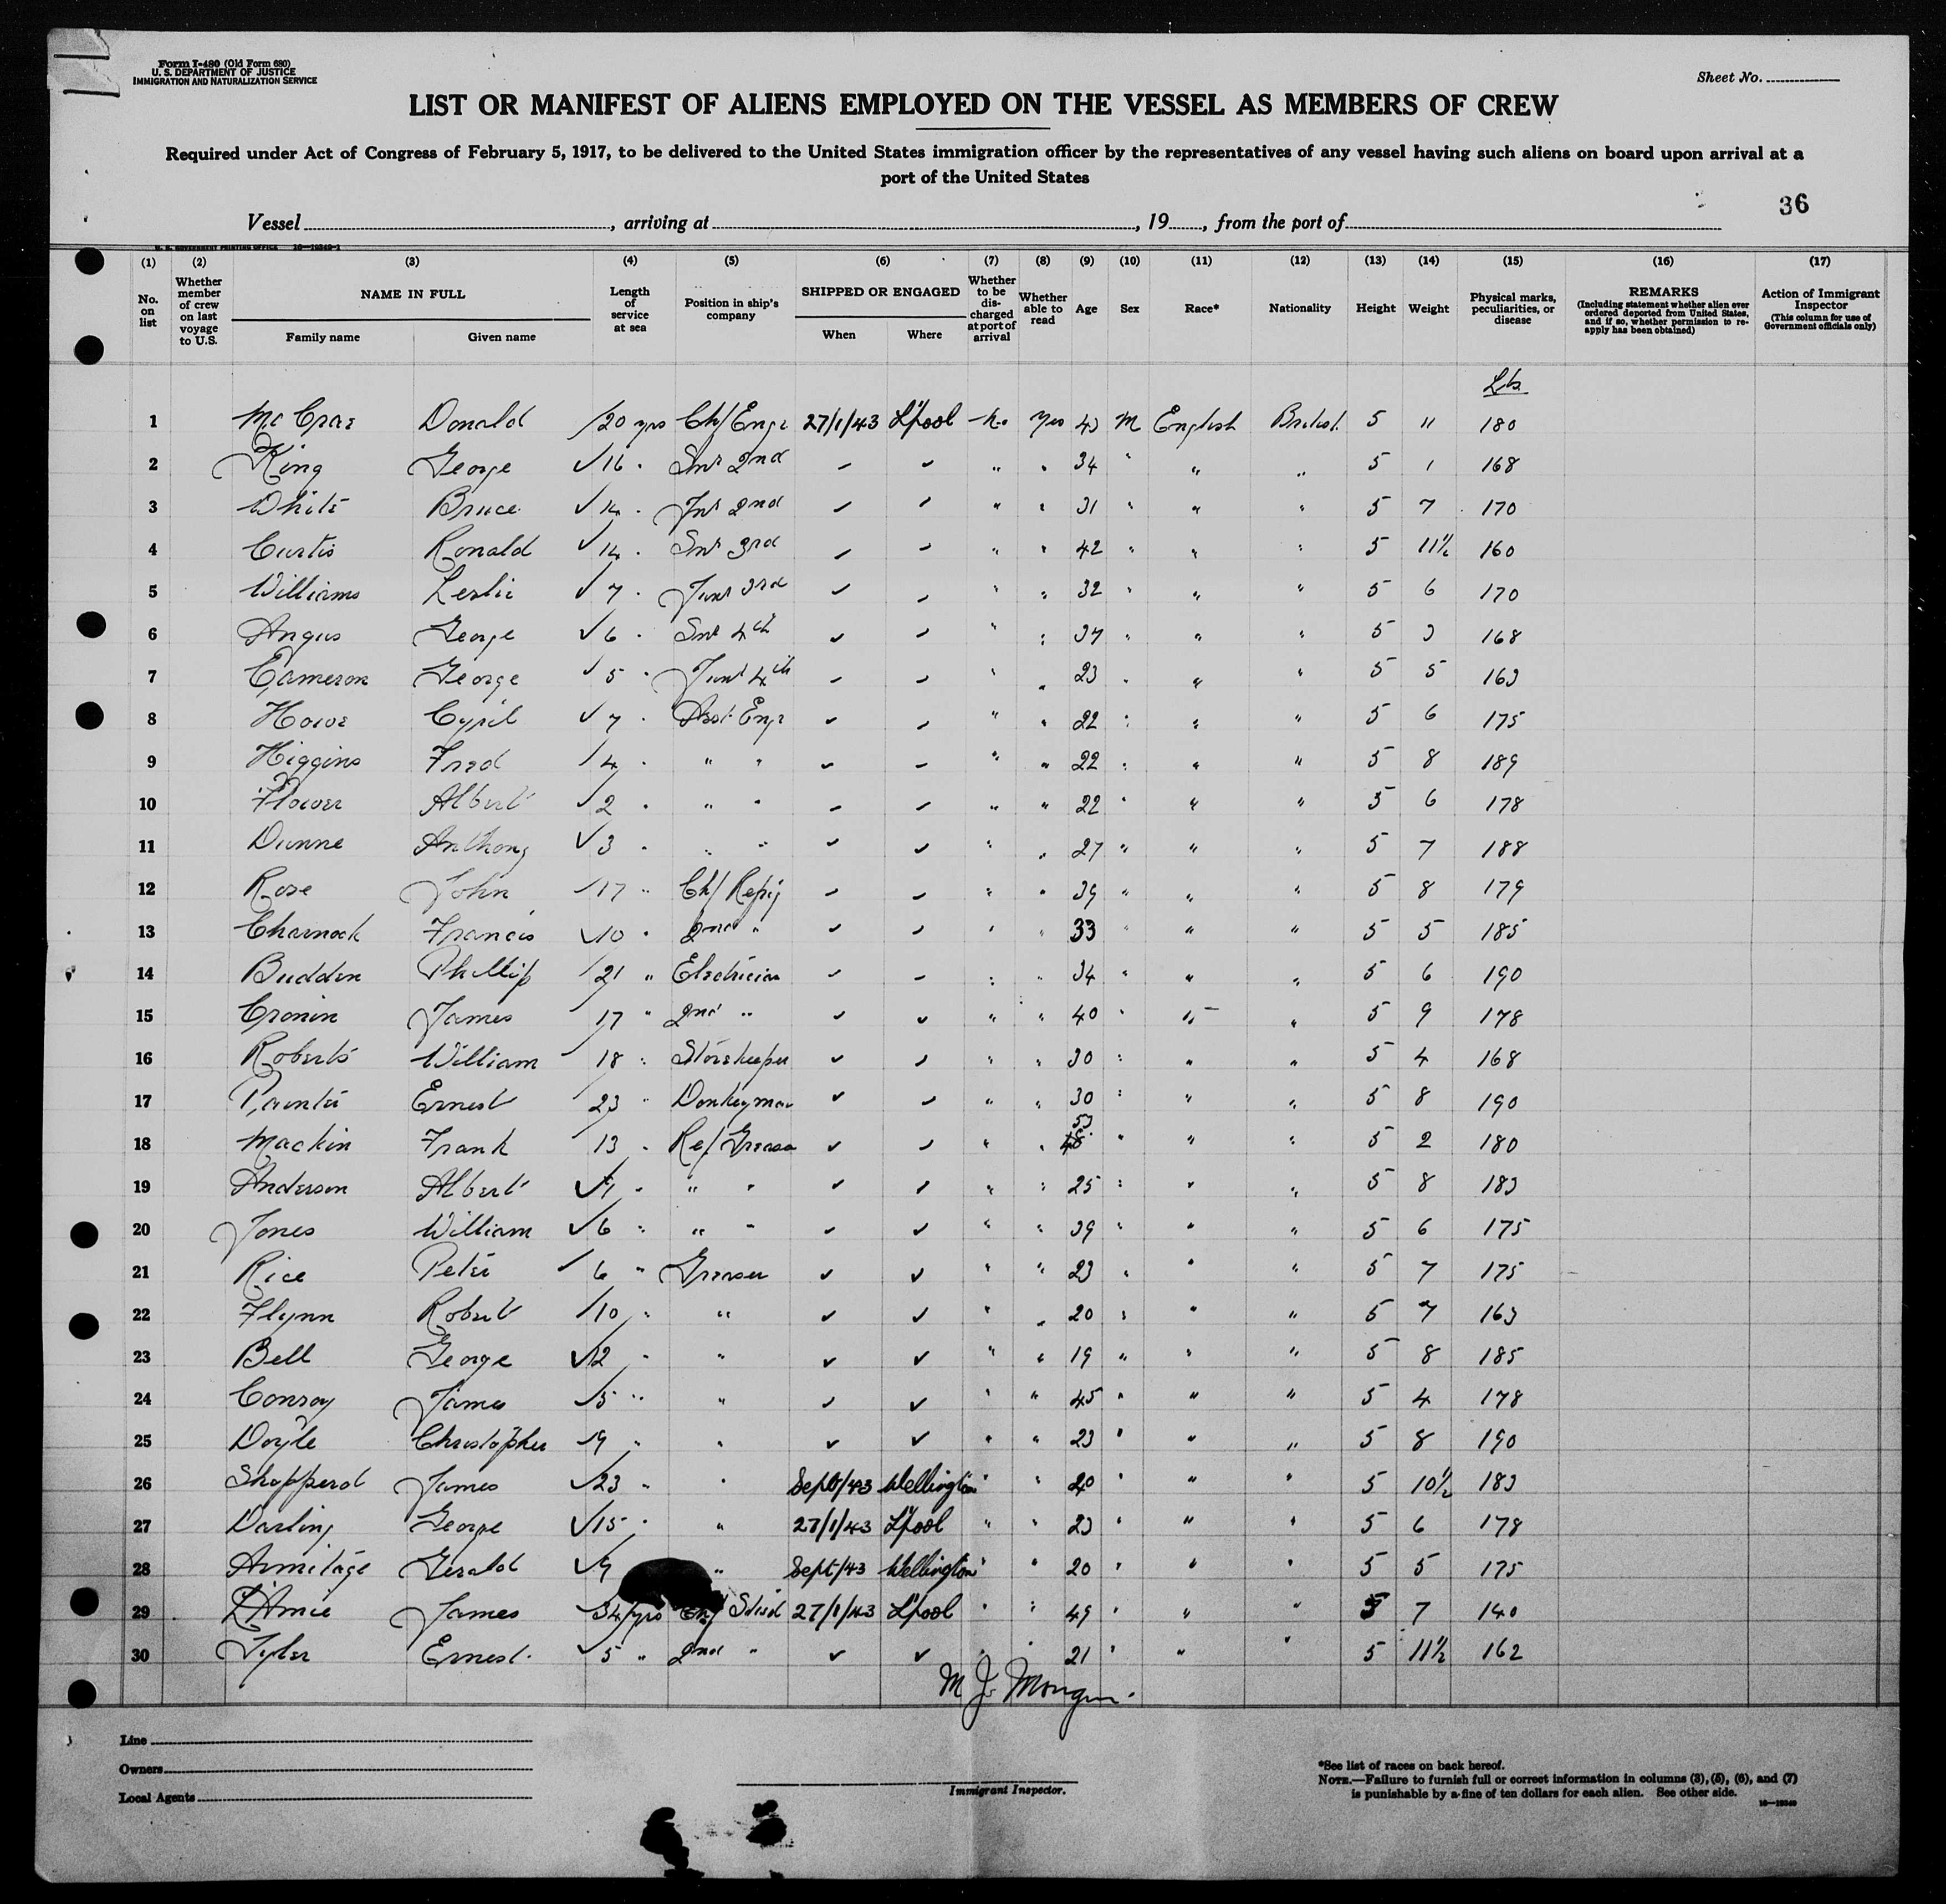 Form I-480 (Old Form 680)
U. S. DEPARTMENT OF JUSTICE
IMMIGRATION AND NATURALIZATION SERVICE
Sheet No.
LIST OR MANIFEST OF ALIENS EMPLOYED ON THE VESSEL AS MEMBERS OF CREW
Required under Act of Congress of February 5, 1917, to be delivered to the United States immigration officer by the representatives of any vessel having such aliens on board upon arrival at a
port of the United States
36
Vessel , arriving at , 19 , from the port of
U. S. GOVERNMENT PRINTING OFFICE 16—19340-1
(1) (2) (3) (4) (5) (6) (7) (8) (9) (10) (11) (12) (13) (14) (15) (16) (17)
No. on list
Whether member of crew on last voyage to U.S.
NAME IN FULL
Family name Given name
Length of service at sea
Position in ship's company
SHIPPED OR ENGAGED
When Where
Whether to be discharged at port of arrival
Whether able to read
Age
Sex
Race*
Nationality
Height
Weight
Physical marks, peculiarities, or disease
REMARKS
(Including statement whether alien ever ordered deported from United States, and if so, whether permission to reapply has been obtained)
Action of Immigrant Inspector
(This column for use of Government officials only)
Lbs
1 McCrae Donald 20 yrs Ch/Engr 27/1/43 L'pool No Yes 43 M English British 5 11 180
2 King George 16 " Snr 2nd " " " " 34 " " " 5 1 168
3 White Bruce 14 " Jnr 2nd " " " " 31 " " " 5 7 170
4 Curtis Ronald 14 " Snr 3rd " " " " 42 " " " 5 11½ 160
5 Williams Leslie 7 " Junr 3rd " " " " 32 " " " 5 6 170
6 Angus George 6 " Snr 4th " " " " 37 " " " 5 3 168
7 Cameron George 5 " Junr 4th " " " " 23 " " " 5 5 163
8 Howe Cyril 7 " Asst Engr " " " " 22 " " " 5 6 175
9 Higgins Fred 4 " " " " " " " 22 " " " 5 8 189
10 Flower Albert 2 " " " " " " " 22 " " " 5 6 178
11 Dunne Anthony 3 " " " " " " " 27 " " " 5 7 188
12 Rose John 17 " Ch/ Refrig " " " " 39 " " " 5 8 179
13 Charnock Francis 10 " 2nd " " " " " 33 " " " 5 5 185
14 Budden Phillip 21 " Electrician " " " " 34 " " " 5 6 190
15 Cronin James 17 " 2nd " " " " " 40 " " " 5 9 178
16 Roberts William 18 " Storekeeper " " " " 30 " " " 5 4 168
17 Painter Ernest 23 " Donkeyman " " " " 30 " " " 5 8 190
18 Mackin Frank 13 " Ref Greaser " " " " 53 " " " 5 2 180
19 Anderson Albert " " " " " " " 25 " " " 5 8 183
20 Jones William 6 " " " " " " " 39 " " " 5 6 175
21 Rice Peter 6 " Greaser " " " " 23 " " " 5 7 175
22 Flynn Robert 10 " " " " " " 20 " " " 5 7 163
23 Bell George 2 " " " " " " 19 " " " 5 8 185
24 Conroy James 5 " " " " " " 45 " " " 5 4 178
25 Doyle Christopher 9 " " " " " " 23 " " " 5 8 190
26 Shepperd James 23 " " Sept/43 Wellington " " 20 " " " 5 10½ 183
27 Darling George 15 " " 27/1/43 L'pool " " 23 " " " 5 6 178
28 Armitage Gerald 9 " Sept/43 Wellington " " 20 " " " 5 5 175
29 James 34 yrs Eng Stwd 27/1/43 L'pool " " 49 " " " 5 7 140
30 Tyler Ernest 5 " 2nd " " " " " 21 " " " 5 11½ 162
M J Mongan
Line
Owners
Local Agents
Immigrant Inspector.
*See list of races on back hereof.
NOTE.—Failure to furnish full or correct information in columns (3), (5), (6), and (7)
is punishable by a fine of ten dollars for each alien. See other side.
16—19340